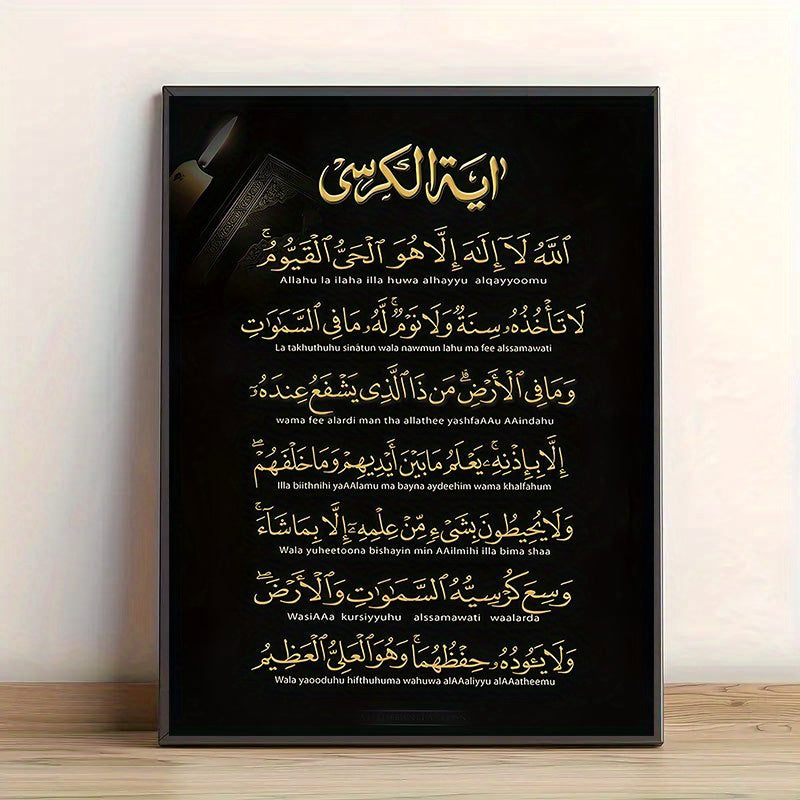 اية الكرسى
ٱللَّهُ لَآ إِلَٰهَ إِلَّا هُوَ ٱلْحَىُّ ٱلْقَيُّومُ ۚ
Allahu la ilaha illa huwa alhayyu alqayyoomu
لَا تَأْخُذُهُۥ سِنَةٌ وَلَا نَوْمٌ ۚ لَّهُۥ مَا فِى ٱلسَّمَٰوَٰتِ
La takhuthuhu sinatun wala nawmun lahu ma fee alssamawati
وَمَا فِى ٱلْأَرْضِ ۗ مَن ذَا ٱلَّذِى يَشْفَعُ عِندَهُۥٓ
wama fee alardi man tha allathee yashfaAAu AAindahu
إِلَّا بِإِذْنِهِۦ ۚ يَعْلَمُ مَا بَيْنَ أَيْدِيهِمْ وَمَا خَلْفَهُمْ ۖ
Illa biithnihi yaAAlamu ma bayna aydeehim wama khalfahum
وَلَا يُحِيطُونَ بِشَىْءٍ مِّنْ عِلْمِهِۦٓ إِلَّا بِمَا شَآءَ ۚ
Wala yuheetoona bishayin min AAilmihi illa bima shaa
وَسِعَ كُرْسِيُّهُ ٱلسَّمَٰوَٰتِ وَٱلْأَرْضَ ۖ
WasiAAa kursiyyuhu alssamawati waalarda
وَلَا يَـُٔودُهُۥ حِفْظُهُمَا ۚ وَهُوَ ٱلْعَلِىُّ ٱلْعَظِيمُ
Wala yaooduhu hifthuhuma wahuwa alAAaliyyu alAAatheemu